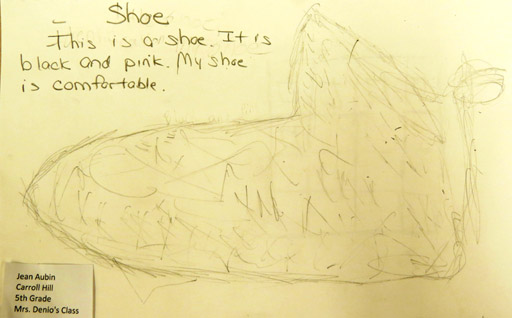 Shoe
This is a shoe. It is
black and pink. My shoe
is comfortable.
Jean Aubin
Carroll Hill
5th Grade
Mrs. Denio's Class